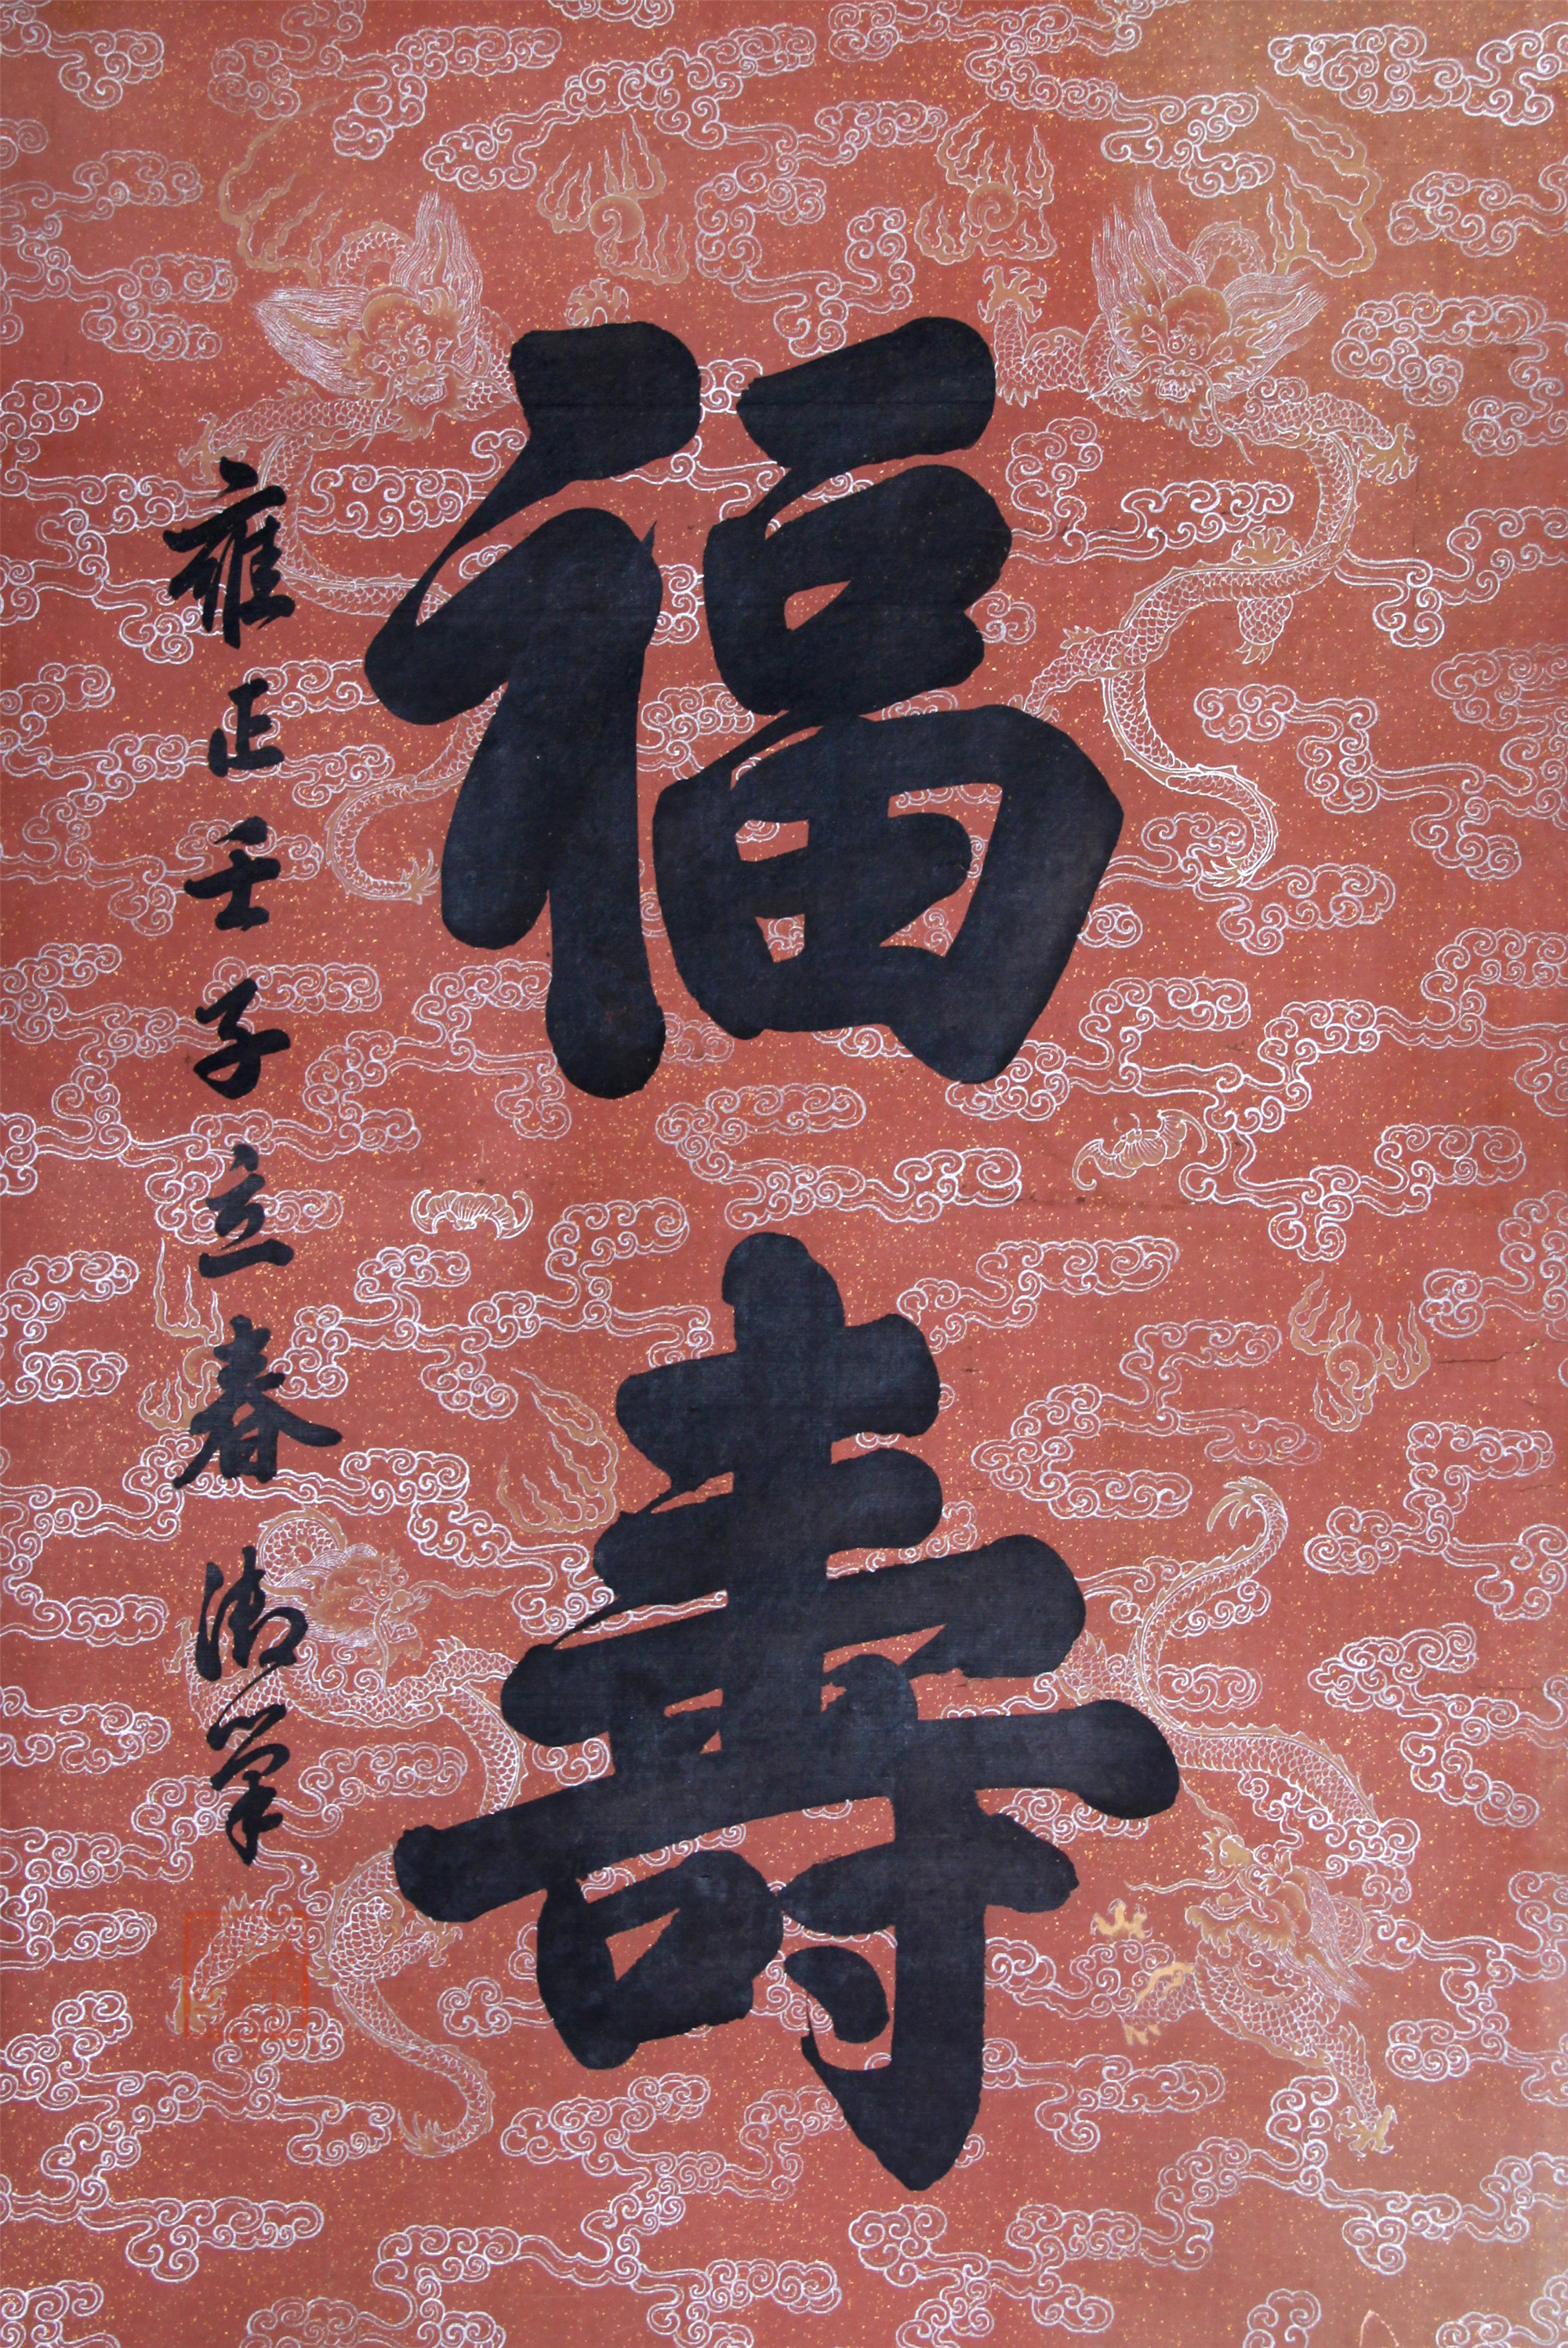 福壽
雍正壬子立春御筆